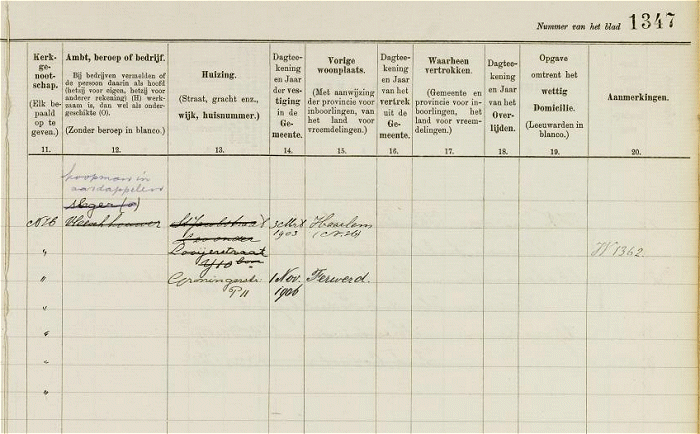 Nummer van het blad 1347
Kerk-
ge-
noot-
schap.
(Elk be-
paald
op te
geven.)
11.
Ambt, beroep of bedrijf.
Bij bedrijven vermelden of
de persoon daarin als hoofd
(hetzij voor eigen, hetzij voor
anderer rekening) (H) werk-
man is, dan wel als onder-
geschikte (O).
(Zonder beroep in blanco.)
12.
Huizing.
(Straat, gracht enz.,
wijk, huisnummer.)
13.
Dagtee-
kening
en Jaar
der ves-
tiging
in de
Ge-
meente.
14.
Vorige
woonplaats.
(Met aanwijzing
der provincie voor
inboorlingen, van
het land voor
vreemdelingen.)
15.
Dagtee-
kening
en Jaar
van het
vertrek
uit de
Ge-
meente.
16.
Waarheen
vertrokken.
(Gemeente en
provincie voor in-
boorlingen, het
land voor vreem-
delingen.)
17.
Dagtee-
kening
en Jaar
van het
Over-
lijden.
18.
Opgave
omtrent het
wettig
Domicilie.
(Leeuwarden in
blanco.)
19.
Aanmerkingen.
20.
koopman in
aardappelen
slager (o)
N.H. Vleeschhouwer St Jacobstraat 3 Mrt Haarlem
1903 (N.H.)
" Looyerstraat W 1362.
" Groningerstr 1 Nov. Ferwerd.
P 11 1906
"
"
"
"